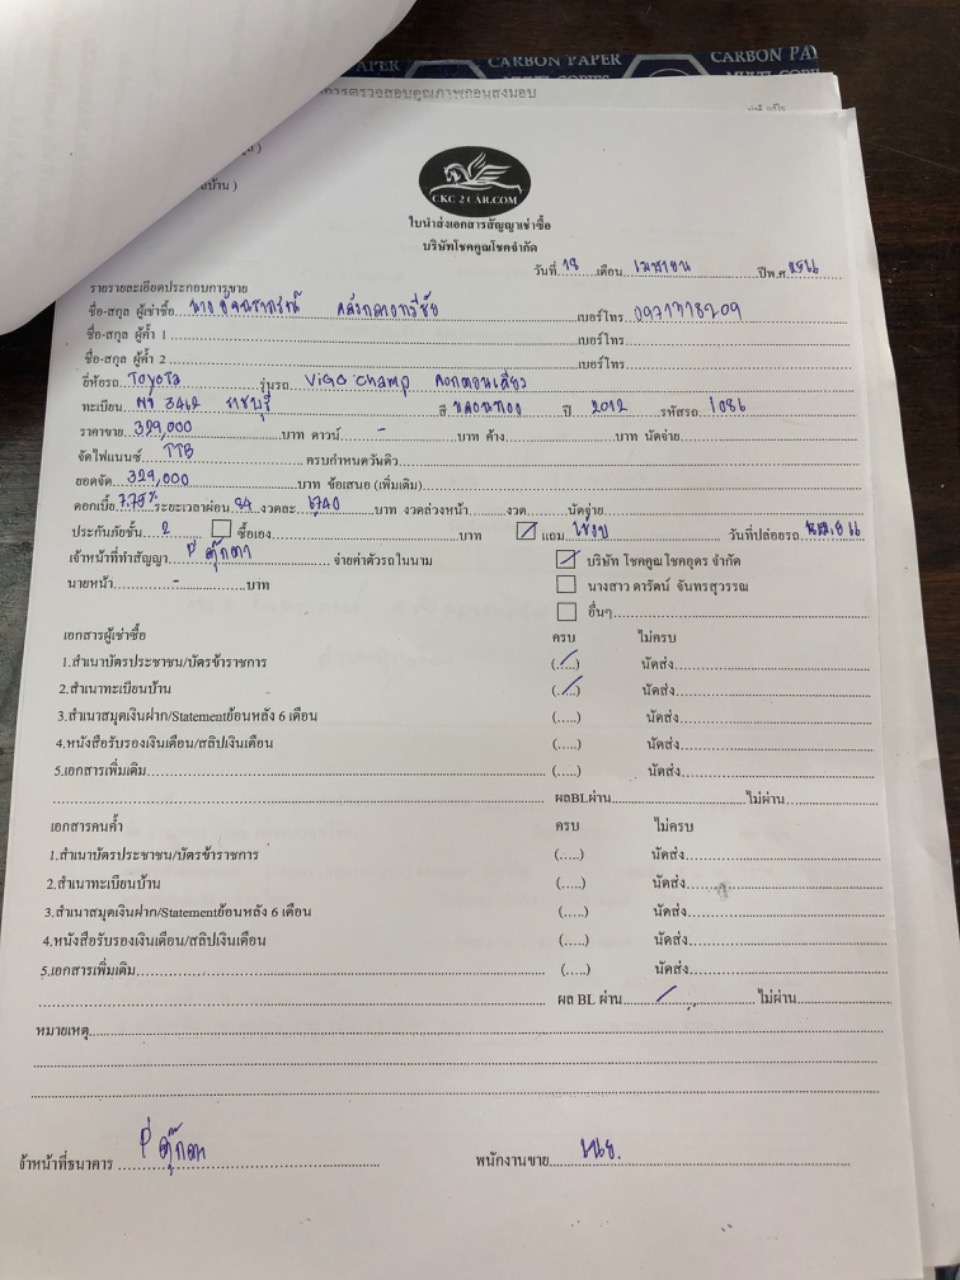 CARBON PAPER
CARBON
การตรวจสอบคุณภาพก่อนส่งมอบ
บ้าน )
CKC 2 CAR.COM
ใบนำส่งเอกสารสัญญาเช่าซื้อ
บริษัทโชคคูณโชคจำกัด
วันที่ 18 เดือน เมษายน ปีพ.ศ 2566
รายละเอียดประกอบการขาย
ชื่อ-สกุล ผู้เช่าซื้อ นาง เบอร์โทร
ชื่อ-สกุล ผู้ค้ำ 1 เบอร์โทร
ชื่อ-สกุล ผู้ค้ำ 2 เบอร์โทร
ยี่ห้อรถ Toyota รุ่นรถ Vigo Champ ตอนเดียว
ทะเบียน 3462 ราชบุรี สี ปี 2012 รหัสรถ 1086
ราคาขาย 329,000 บาท ดาวน์ - บาท ค้าง บาท นัดจ่าย
จัดไฟแนนซ์ TTB ครบกำหนดวันดิว
ยอดจัด 329,000 บาท ข้อเสนอ (เพิ่มเติม)
ดอกเบี้ย 7.75% ระยะเวลาผ่อน 84 งวดละ 6740 บาท งวดล่วงหน้า งวด นัดจ่าย
ประกันภัยชั้น 2 ซื้อเอง บาท แถม วันที่ปล่อยรถ
เจ้าหน้าที่ทำสัญญา พี่ ตุ๊กตา จ่ายค่าตัวรถในนาม บริษัท โชคคูณโชคอุดร จำกัด
นายหน้า - บาท นางสาว ดารัตน์ จันทรสุวรรณ
อื่นๆ
เอกสารผู้เช่าซื้อ ครบ ไม่ครบ
1.สำเนาบัตรประชาชน/บัตรข้าราชการ (./.) นัดส่ง
2.สำเนาทะเบียนบ้าน (./.) นัดส่ง
3.สำเนาสมุดเงินฝาก/Statementย้อนหลัง 6 เดือน (.....) นัดส่ง
4.หนังสือรับรองเงินเดือน/สลิปเงินเดือน (.....) นัดส่ง
5.เอกสารเพิ่มเติม (.....) นัดส่ง
ผลBLผ่าน ไม่ผ่าน
เอกสารคนค้ำ ครบ ไม่ครบ
1.สำเนาบัตรประชาชน/บัตรข้าราชการ (.....) นัดส่ง
2.สำเนาทะเบียนบ้าน (.....) นัดส่ง
3.สำเนาสมุดเงินฝาก/Statementย้อนหลัง 6 เดือน (.....) นัดส่ง
4.หนังสือรับรองเงินเดือน/สลิปเงินเดือน (.....) นัดส่ง
5.เอกสารเพิ่มเติม (.....) นัดส่ง
ผล BL ผ่าน / ไม่ผ่าน
หมายเหตุ
จ้าหน้าที่ธนาคาร พี่ ตุ๊กตา พนักงานขาย